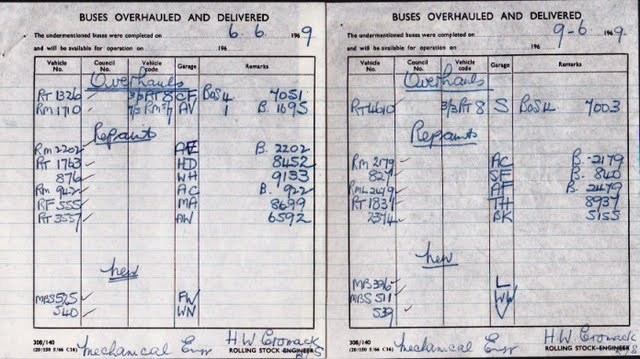 BUSES OVERHAULED AND DELIVERED
The undermentioned buses were completed on 6.6. 1969
and will be available for operation on 196
Vehicle No. Council No. Vehicle code Garage Remarks
Overhauls
RT 1326 3/3RT 8 CF Box 4 7051
RM 1710 AV 1 B. 1695
Repaints
RM 2202 AE B. 2202
RT 1763 HD 8452
876 WH 9133
RM 942 AC B. 922
RF 555 MA 8699
RT 3557 AW 6592
New
MBS 525 FW
540 WN
308/140
Mechanical Engr H.W. Cronack
ROLLING STOCK ENGINEER
BUSES OVERHAULED AND DELIVERED
The undermentioned buses were completed on 9-6 1969.
and will be available for operation on 196
Vehicle No. Council No. Vehicle code Garage Remarks
Overhauls
RT 4610 3/3RT 8 S Box 4 7003
Repaints
RM 2179 AC B. 2179
827 SF B. 840
RML 2479 AF B. 2479
RT 1837 TH 8937
2374 BK 5155
New
MB 336 L
MBS 511
539
308/140
Mechanical Engr H.W. Cronack
ROLLING STOCK ENGINEER